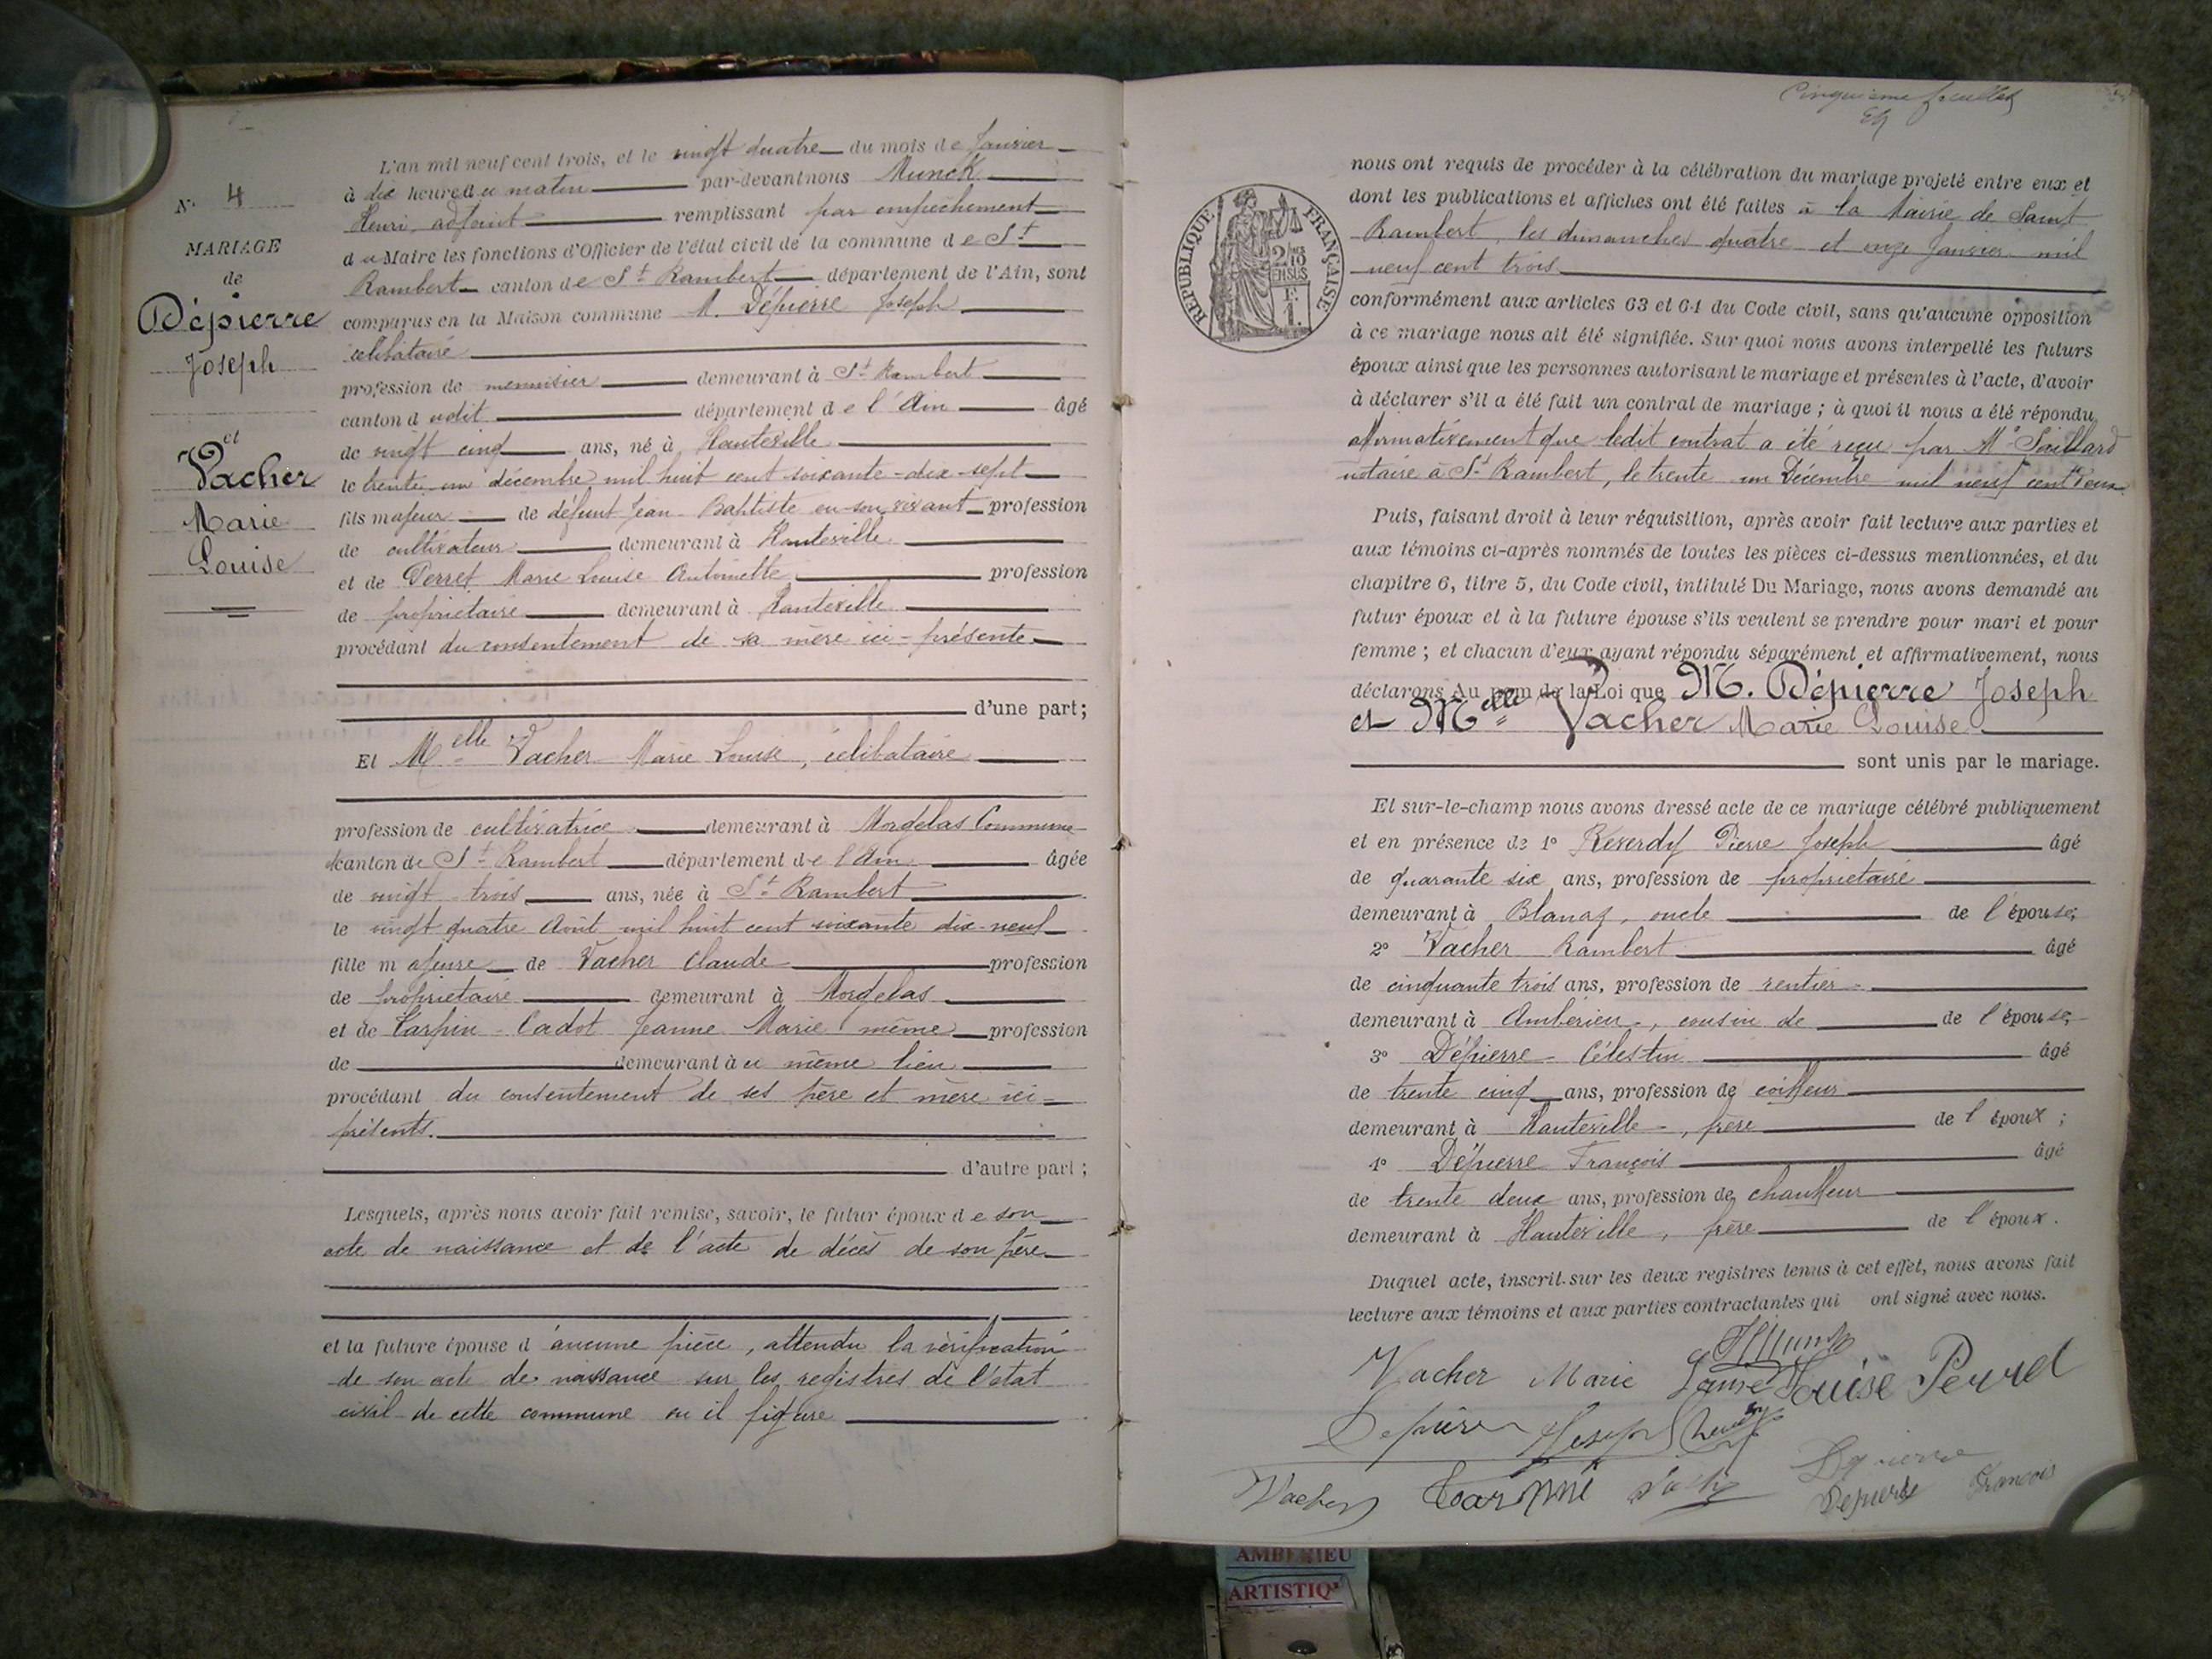 N° 4
MARIAGE
de
Dépierre
Joseph
et
Vacher
Marie
Louise
L'an mil neuf cent trois, et le vingt quatre du mois de Janvier
à dix heures du matin par-devant nous Munck
Henri, adjoint remplissant par empêchement
du Maire les fonctions d'Officier de l'état civil de la commune de St
Rambert canton de St Rambert département de l'Ain, sont
comparus en la Maison commune M. Dépierre Joseph
célibataire
profession de menuisier demeurant à St Rambert
canton dudit département de l'Ain âgé
de vingt cinq ans, né à Hauteville
le trente un décembre mil huit cent soixante-dix-sept
fils majeur de défunt Jean-Baptiste en son vivant profession
de cultivateur demeurant à Hauteville
et de Perret Marie Louise Antoinette profession
de propriétaire demeurant à Hauteville
procédant du consentement de sa mère ici-présente
d'une part;
Et Melle Vacher Marie Louise, célibataire
profession de cultivatrice demeurant à Morgelas Commune
& canton de St Rambert département de l'Ain âgée
de vingt-trois ans, née à St Rambert
le vingt quatre Août mil huit cent soixante dix-neuf
fille majeure de Vacher Claude profession
de propriétaire demeurant à Morgelas
et de Carpin-Cadot Jeanne Marie même profession
de demeurant au même lieu
procédant du consentement de ses père et mère ici-
présents.
d'autre part;
Lesquels, après nous avoir fait remise, savoir, le futur époux de son
acte de naissance et de l'acte de décès de son père
et la future épouse d'aucune pièce, attendu la vérification
de son acte de naissance sur les registres de l'état
civil de cette commune où il figure
Cinquième feuillet
RÉPUBLIQUE FRANÇAISE
2/10
EN SUS
nous ont requis de procéder à la célébration du mariage projeté entre eux et
dont les publications et affiches ont été faites à la Mairie de Saint
Rambert, les dimanches quatre et onze Janvier mil
neuf cent trois
conformément aux articles 63 et 64 du Code civil, sans qu'aucune opposition
à ce mariage nous ait été signifiée. Sur quoi nous avons interpellé les futurs
époux ainsi que les personnes autorisant le mariage et présentes à l'acte, d'avoir
à déclarer s'il a été fait un contrat de mariage; à quoi il nous a été répondu
affirmativement que ledit contrat a été reçu par Me Saillard
notaire à St Rambert, le trente un Décembre mil neuf cent deux
Puis, faisant droit à leur réquisition, après avoir fait lecture aux parties et
aux témoins ci-après nommés de toutes les pièces ci-dessus mentionnées, et du
chapitre 6, titre 5, du Code civil, intitulé Du Mariage, nous avons demandé au
futur époux et à la future épouse s'ils veulent se prendre pour mari et pour
femme; et chacun d'eux ayant répondu séparément et affirmativement, nous
déclarons Au nom de la Loi que M. Dépierre Joseph
et Melle Vacher Marie Louise
sont unis par le mariage.
Et sur-le-champ nous avons dressé acte de ce mariage célébré publiquement
et en présence de 1° Reverdy Pierre Joseph âgé
de quarante six ans, profession de propriétaire
demeurant à Blanaz, oncle de l'épouse;
2° Vacher Rambert âgé
de cinquante trois ans, profession de rentier
demeurant à Ambérieu, cousin de de l'épouse;
3° Dépierre Célestin âgé
de trente cinq ans, profession de coiffeur
demeurant à Hauteville, frère de l'époux;
4° Dépierre François âgé
de trente deux ans, profession de chauffeur
demeurant à Hauteville, frère de l'époux.
Duquel acte, inscrit sur les deux registres tenus à cet effet, nous avons fait
lecture aux témoins et aux parties contractantes qui ont signé avec nous.
HMunck
Vacher Marie Louise Louise Perret
Depierre Joseph
Vacher Carpin Depierre
Depierre François
AMBERIEU
ARTISTIQ